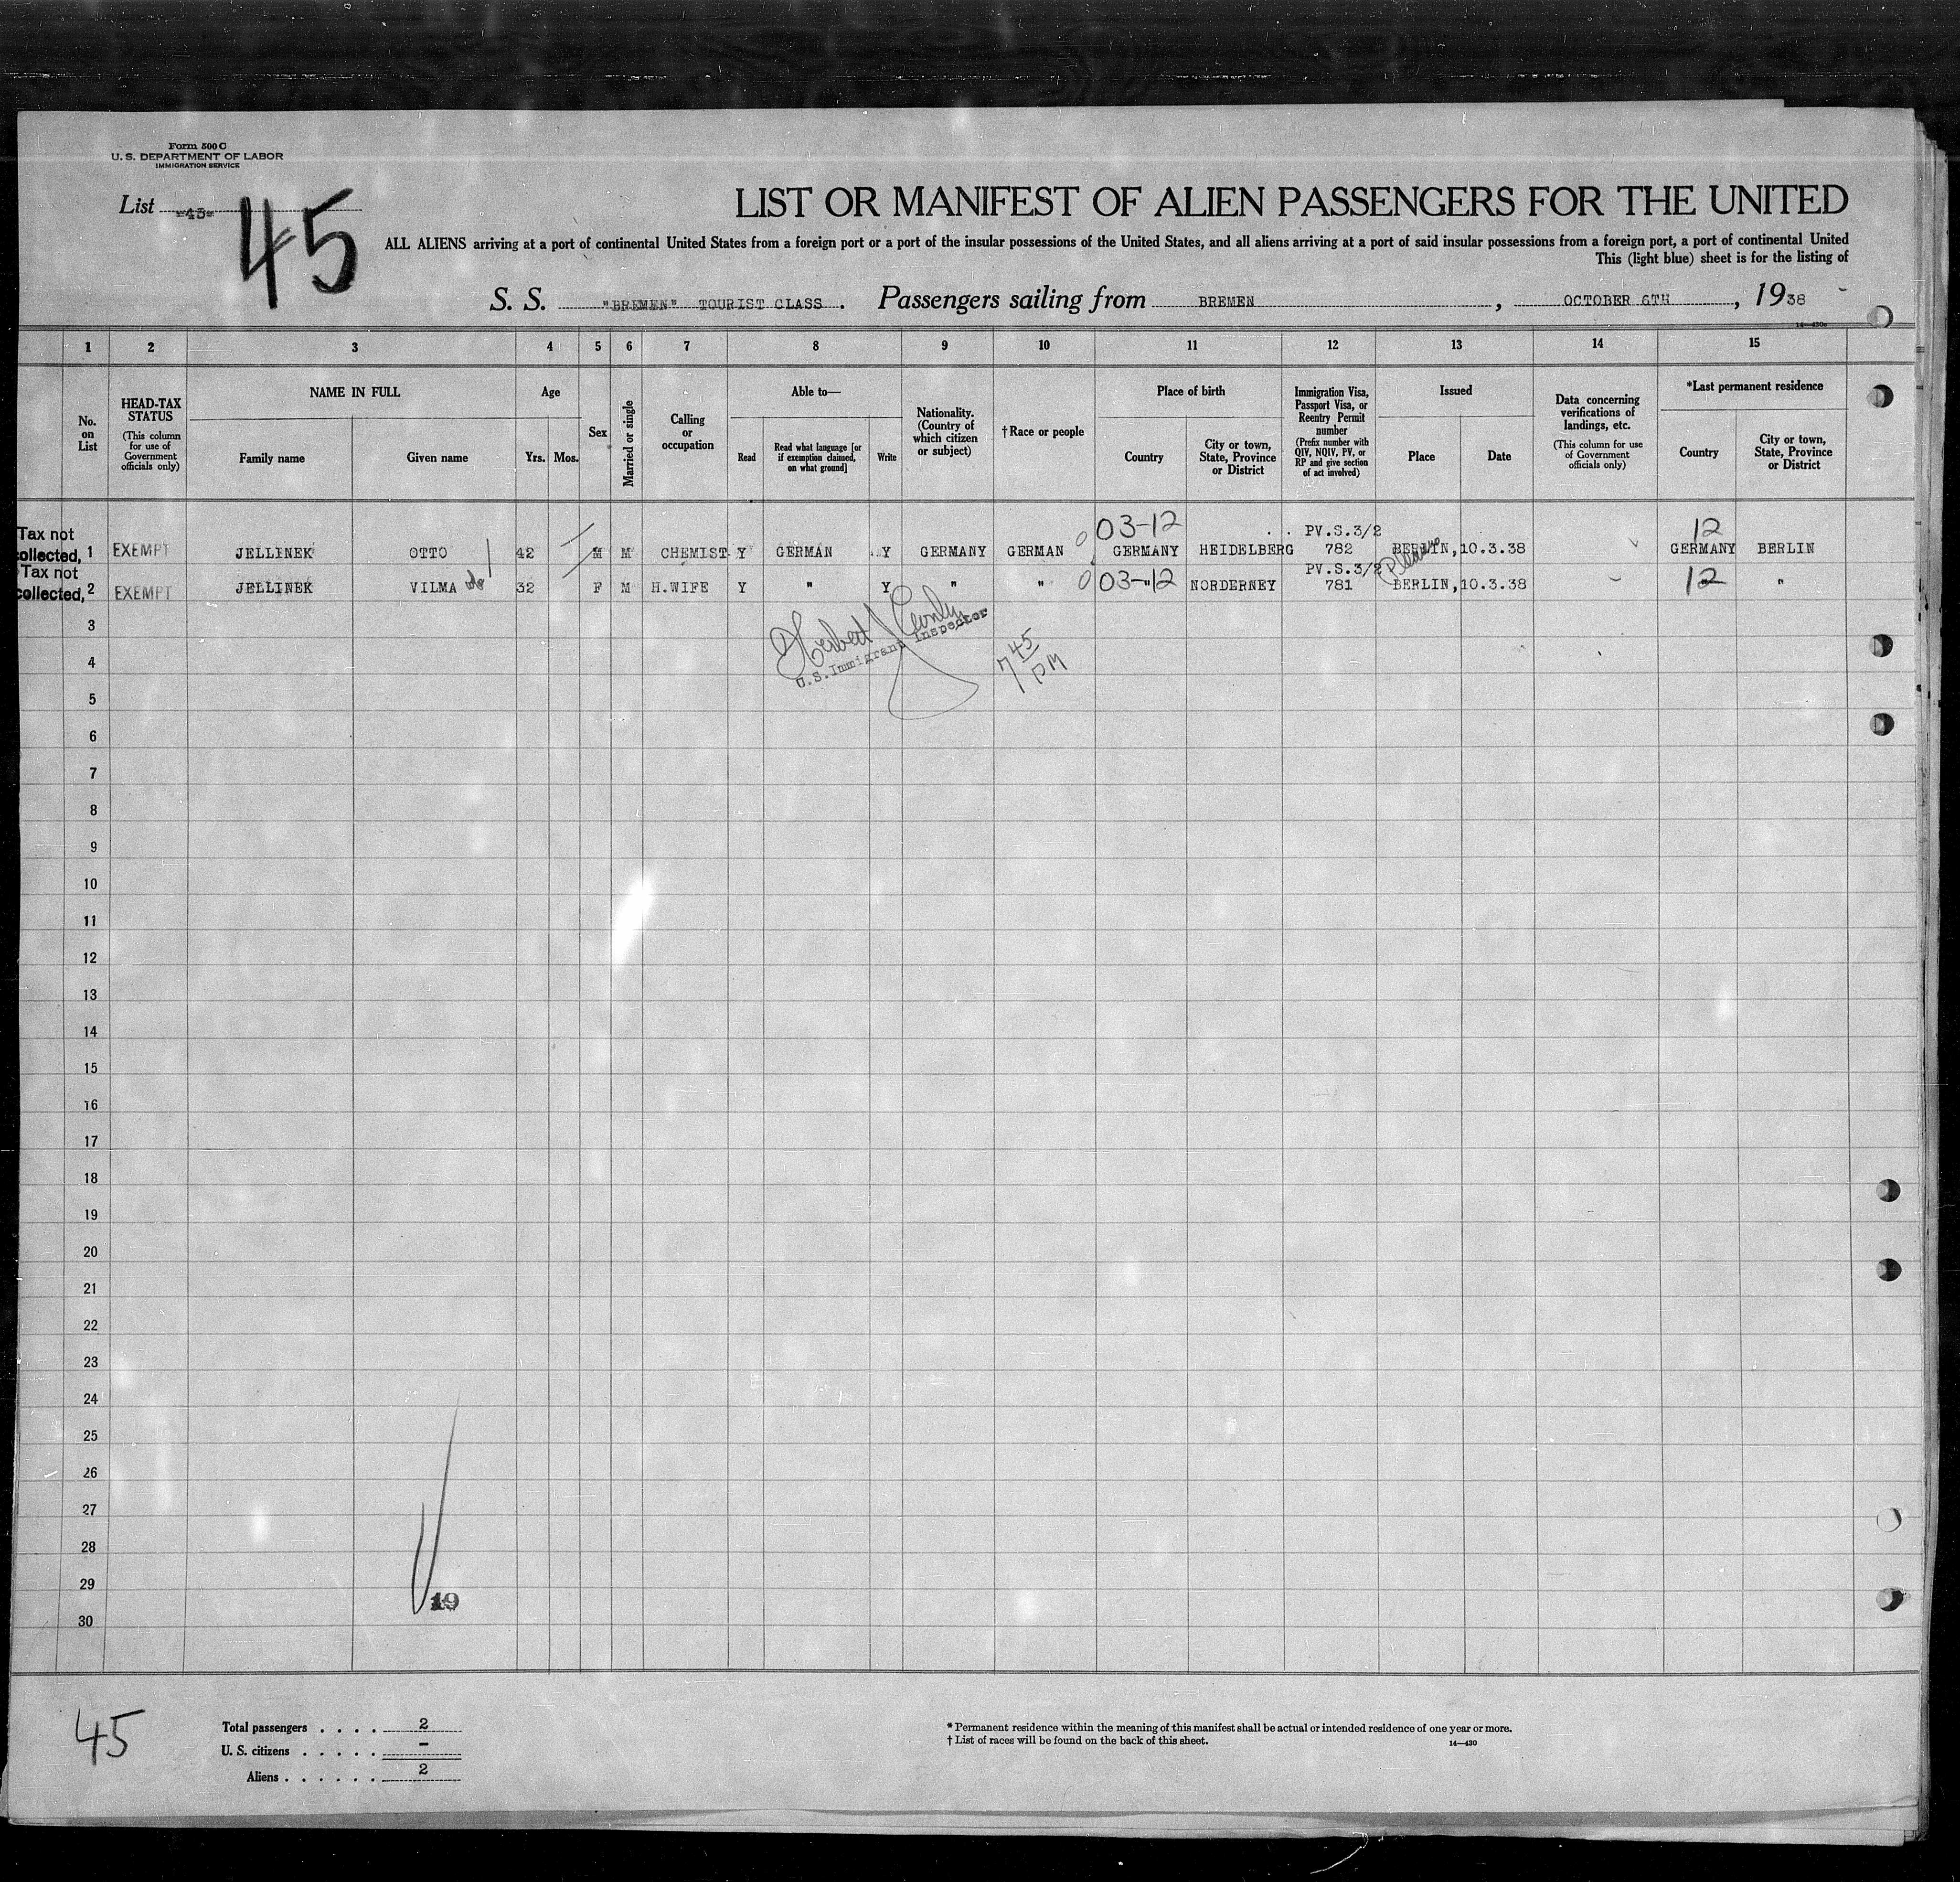 Form 500 C
U. S. DEPARTMENT OF LABOR
IMMIGRATION SERVICE
List -45-
45
LIST OR MANIFEST OF ALIEN PASSENGERS FOR THE UNITED
ALL ALIENS arriving at a port of continental United States from a foreign port or a port of the insular possessions of the United States, and all aliens arriving at a port of said insular possessions from a foreign port, a port of continental United
This (light blue) sheet is for the listing of
S. S. "BREMEN" TOURIST CLASS . Passengers sailing from BREMEN , OCTOBER 6TH , 1938
1 2 3 4 5 6 7 8 9 10 11 12 13 14 15
No. on List
HEAD-TAX STATUS
(This column for use of Government officials only)
NAME IN FULL
Family name
Given name
Age
Yrs. Mos.
Sex
Married or single
Calling or occupation
Able to—
Read
Read what language [or if exemption claimed, on what ground]
Write
Nationality. (Country of which citizen or subject)
†Race or people
Place of birth
Country
City or town, State, Province or District
Immigration Visa, Passport Visa, or Reentry Permit number
(Prefix number with QIV, NQIV, PV, or RP and give section of act involved)
Issued
Place
Date
Data concerning verifications of landings, etc.
(This column for use of Government officials only)
*Last permanent residence
Country
City or town, State, Province or District
14—430a
Tax not 03-12 PV.S.3/2 12
collected, 1 EXEMPT JELLINEK OTTO 42 M M CHEMIST Y GERMAN Y GERMANY GERMAN GERMANY HEIDELBERG 782 BERLIN, 10.3.38 GERMANY BERLIN
Tax not PV.S.3/2
collected, 2 EXEMPT JELLINEK VILMA 32 F M H.WIFE Y " Y " " 03-"12 NORDERNEY 781 BERLIN, 10.3.38 12 "
3
Herbert
U.S. Immigrant Inspector
7 45 PM
4
5
6
7
8
9
10
11
12
13
14
15
16
17
18
19
20
21
22
23
24
25
26
27
28
29
19
30
45
Total passengers . . . . 2
U. S. citizens . . . . . -
Aliens . . . . . . 2
* Permanent residence within the meaning of this manifest shall be actual or intended residence of one year or more.
† List of races will be found on the back of this sheet.
14—430